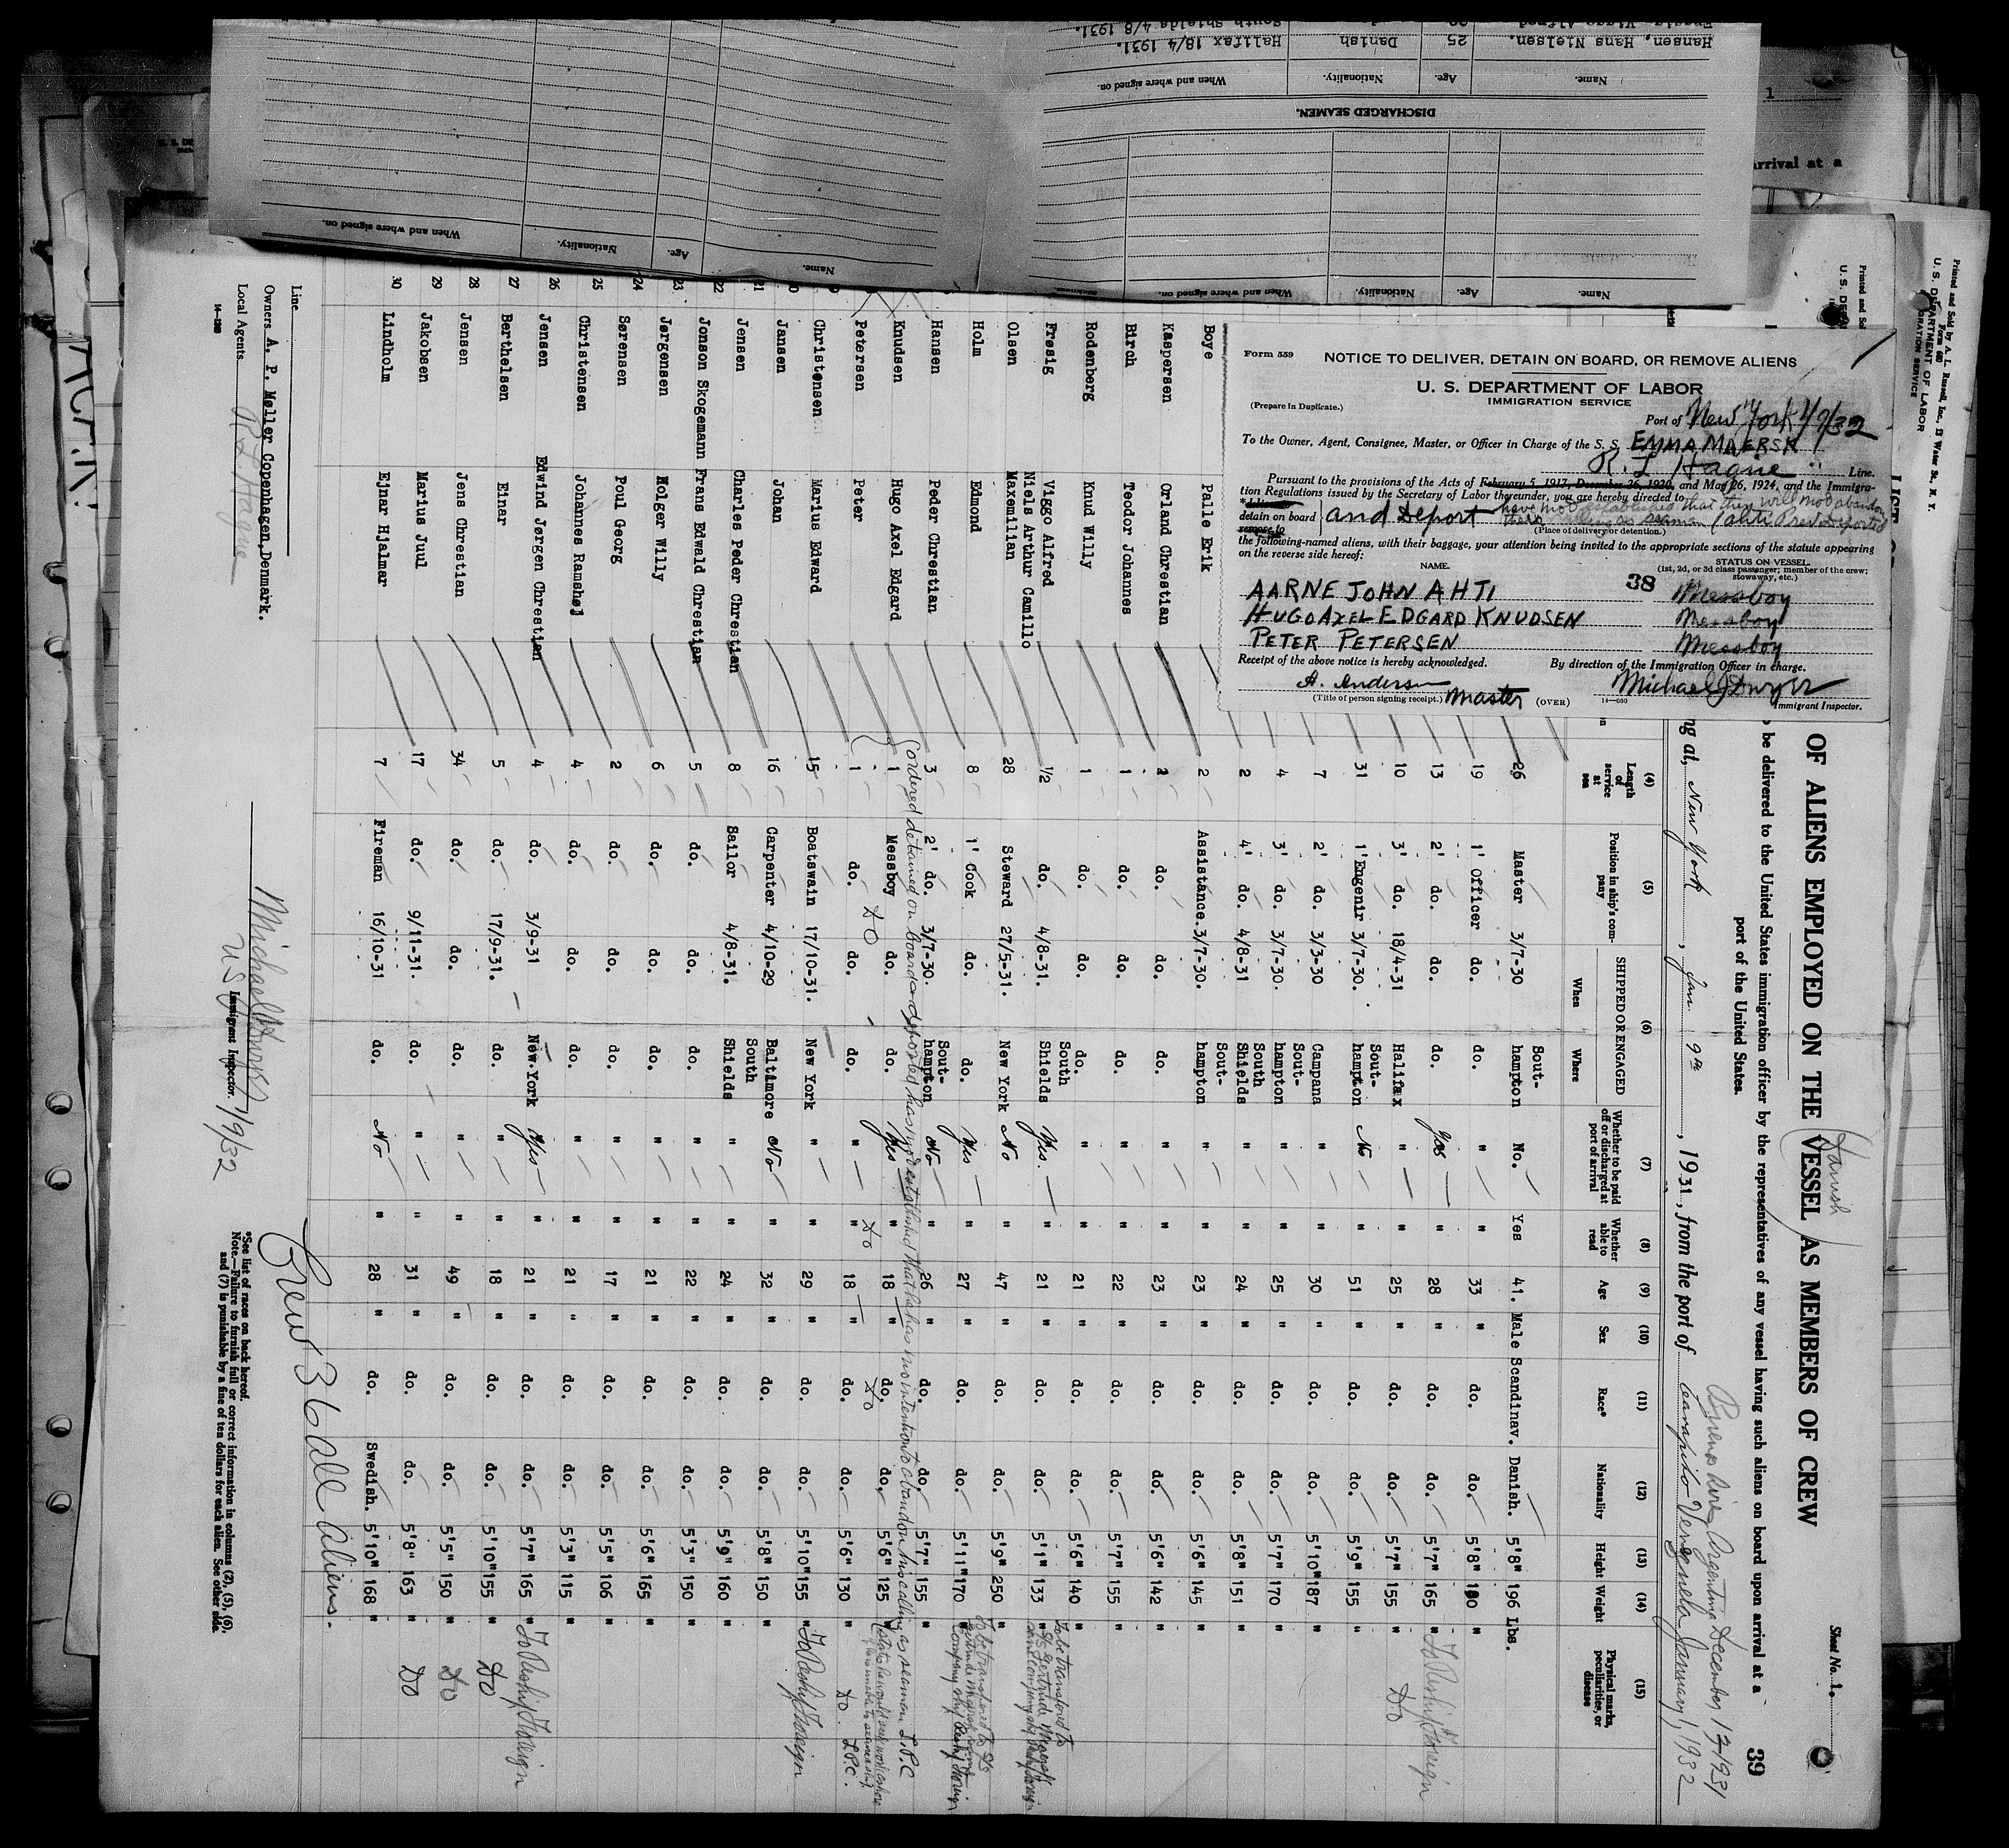 Hansen, Hans Nielsen. 25 Danish Halifax 18/4 1931.
South Shields 4/8 1931.
Name. Age. Nationality. When and where signed on.
DISCHARGED SEAMEN.
Name. Age. Nationality. When and where signed on.
Name. Age. Nationality. When and where signed on.
1
arrival at a
Form 559
NOTICE TO DELIVER, DETAIN ON BOARD, OR REMOVE ALIENS
U. S. DEPARTMENT OF LABOR
IMMIGRATION SERVICE
(Prepare in Duplicate.)
Port of New York 1/9/32
To the Owner, Agent, Consignee, Master, or Officer in Charge of the S. S. EMMA MAERSK
R. L Hague Line.
Pursuant to the provisions of the Acts of February 5, 1917, December 26, 1920, and May 26, 1924, and the Immigra-
tion Regulations issued by the Secretary of Labor thereunder, you are hereby directed to
have not established that they will not abandon
detain on board and Deport their calling as seaman
remove to (Place of delivery or detention.)
the following-named aliens, with their baggage, your attention being invited to the appropriate sections of the statute appearing
on the reverse side hereof:
NAME. STATUS ON VESSEL.
(1st, 2d, or 3d class passenger; member of the crew;
stowaway, etc.)
38
AARNE JOHN AHTI Messboy
HUGO AXEL EDGARD KNUDSEN Messboy
PETER PETERSEN Messboy
Receipt of the above notice is hereby acknowledged. By direction of the Immigration Officer in charge.
A. Andersen Master Michael J Dwyer
(Title of person signing receipt.) (OVER) 14—660 Immigrant Inspector.
Printed and Sold by A. L. Russell, Inc., 13 Water St., N. Y.
Form 680
U. S. DEPARTMENT OF LABOR
IMMIGRATION SERVICE
Sheet No. 1.
39
OF ALIENS EMPLOYED ON THE VESSEL AS MEMBERS OF CREW
Danish
be delivered to the United States immigration officer by the representatives of any vessel having such aliens on board upon arrival at a
port of the United States.
Buenos Aires Argentina December 17 1931
ng at, New York, Jan. 9th, 1931, from the port of Caripito Venezuela January 1, 1932
(4) Length of service at sea
(5) Position in ship's company
(6) SHIPPED OR ENGAGED When Where
(7) Whether to be paid off or discharged at port of arrival
(8) Whether able to read
(9) Age
(10) Sex
(11) Race*
(12) Nationality
(13) Height
(14) Weight
(15) Physical marks, peculiarities, or disease
26 Master 3/7-30 South-hampton No. Yes 41. Male Scandinav. Danish. 5'8" 196 Lbs.
19 1' Officer do. do. " " 33 " do. do. 5'8" 190 "
13 2' do. do. do. yes " 28 " do. do. 5'7" 165 " To Reship Foreign
10 3' do. 18/4-31 Halifax " " 25 " do. do. 5'7" 155 " DO
31 1' Engenir 3/7-30. Sout-hampton No " 51 " do. do. 5'9" 155 "
7 2' do. 3/3-30 Campana " " 30 " do. do. 5'10" 187 "
4 3' do. 3/7-30. Sout-hampton " " 25 " do. do. 5'7" 170 "
2 4' do. 4/8-31 South Shields " " 24 " do. do. 5'8" 151 "
Boye Palle Erik 2 Assistance. 3/7-30. Sout-hampton " " 23 " do. do. 5'6" 145 "
Kaspersen Orland Chrestian 1 do. do. do. " " 23 " do. do. 5'6" 142 "
Birch Teodor Johannes 1 do. do. do. " " 22 " do. do. 5'7" 155 "
Rodenberg Knud Willy 1 do. do. do. " " 21 " do. do. 5'6" 140 "
Frøsig Viggo Alfred 1/2 do. 4/8-31. South Shields Yes. " 21 " do. do. 5'1" 133 " To be transferred to SS Gertrude Maersk
Olsen Niels Arthur Camillo Maxemilian 28 Steward 27/5-31. New York No " 47 " do. do. 5'9" 250 "
Holm Edmond 8 1' Cook do. do. Yes " 27 " do. do. 5'11" 170 " To be transferred to SS
Hansen Peder Chrestian 3 2' do. 3/7-30. Sout-hampton No " 26 " do. do. 5'7" 155 "
(ordered detained on board & deported has not established that he has no intention to abandon his calling as seaman I.P.C
Knudsen Hugo Axel Edgard 1 Messboy do. do. Yes " 18 " do. do. 5'6" 125 "
DO DO DO
Petersen Peter 1 do. do. do. " " 18 " do. do. 5'6" 130 " DO I.P.C.
Christensen Marius Edward 15 Boatswain 17/10-31. New York " " 29 " do. do. 5'10" 155 " To Reship Foreign
20 Jansen Johan 16 Carpenter 4/10-29 Baltimore No " 32 " do. do. 5'8" 150 "
21 Jensen Charles Peder Chrestian 8 Sailor 4/8-31. South Shields " " 24 " do. do. 5'9" 160 "
22 Jonson Skogemann Frans Edwald Chrestian 5 do. do. do. " " 22 " do. do. 5'3" 150 "
23 Jørgensen Holger Willy 6 do. do. do. " " 21 " do. do. 5'6" 165 "
24 Sørensen Poul Georg 2 do. do. do. " " 17 " do. do. 5'5" 106 "
25 Christensen Johannes Ramshøj 4 do. do. do. " " 21 " do. do. 5'3" 115 "
26 Jensen Edwind Jørgen Chrestian 4 do. 3/9-31 New York Yes " 21 " do. do. 5'7" 165 " To Reship Foreign
27 Berthelsen Einar 5 do. 17/9-31. do. " " 18 " do. do. 5'10" 155 " DO
28 Jensen Jens Chrestian 34 do. do. do. " " 49 " do. do. 5'5" 150 " DO
29 Jakobsen Marius Juul 17 do. 9/11-31. do. " " 31 " do. do. 5'8" 163 " DO
30 Lindholm Ejnar Hjalmar 7 Fireman 16/10-31 do. No " 28 " do. Swedish. 5'10" 168 "
Crew 36 all aliens.
Line
Owners A. P. Møller Copenhagen, Denmark.
Local Agents R L Hague
14—1240
Michael J Dwyer 1/9/32
US Immigrant Inspector.
*See list of races on back hereof.
Note.—Failure to furnish full or correct information in columns (2), (5), (6),
and (7) is punishable by a fine of ten dollars for each alien. See other side.